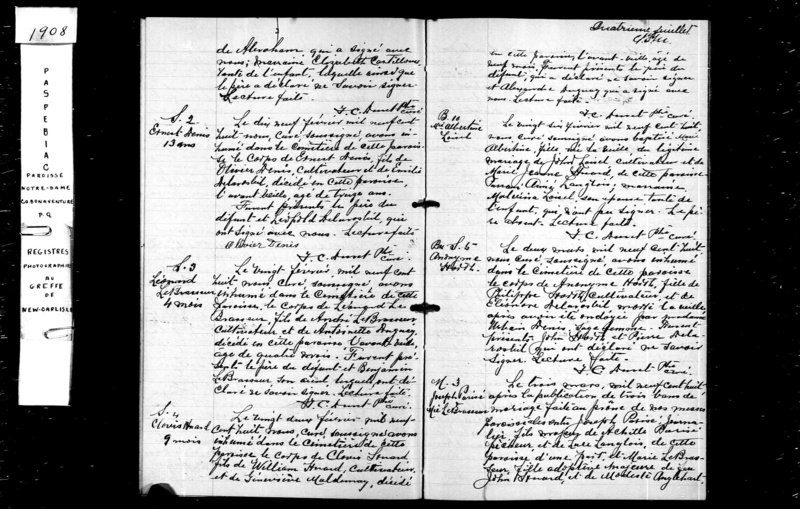 1908
PASPEBIAC
PAROISSE
NOTRE-DAME
CO.BONAVENTURE
P.Q.
REGISTRES
PHOTOGRAPHIE
AU
GREFFE
DE
NEW-CARLISLE
de Abraham, qui a signé avec
nous; marraine Elizabeth
tante de l'enfant, laquelle ainsi que
le père a déclaré ne savoir signer.
Lecture faite.
Ptre
curé
S. 2
Ernest Denis
13 ans
Le dix février mil neuf cent
huit nous, curé soussigné, avons in-
humé dans le Cimetière de cette parois-
se le corps de Ernest Denis, fils de
Olivier Denis, Cultivateur et de
décédé en cette paroisse,
l'avant veille, âgé de treize ans.
Furent présents le père du
défunt et Léopold qui
ont signé avec nous. Lecture faite
Olivier Denis
Ptre
curé.
S. 3
Léonard
LeBrasseur
4 mois
Le vingt février, mil neuf cent
huit nous, curé soussigné, avons
inhumé dans le Cimetière de cette
paroisse, le corps de Léonard Le
Brasseur, fils de André LeBrasseur,
Cultivateur et de Antoinette Anguay,
décédé en cette paroisse l'avant veille,
âgé de quatre mois. Furent pré-
sents le père du défunt et Benjamin
LeBrasseur, son aïeul lesquels ont dé-
claré ne savoir signer. Lecture faite
Ptre
curé.
S. 4
Clovis Huard
9 mois
Le vingt deux février mil neuf
cent huit nous, curé, soussigné avons
inhumé dans le Cimetière de cette
paroisse le corps de Clovis Huard,
fils de William Huard, Cultivateur,
et de Geneviève décédé
Quatrième feuillet
en cette paroisse, l'avant-veille, âgé de
neuf mois. Furent présents le père du
défunt, qui a déclaré ne savoir signer
et Alexandre Anguay qui a signé avec
nous. Lecture faite.
Ptre
curé.
B. 10
M. Albertine
Loisel
Le vingt six février mil neuf cent huit,
nous curé soussigné, avons baptisé Marie
Albertine, fille née la veille du légitime
mariage de John Loisel cultivateur et de
Marie Jeanne Huard, de cette paroisse
Parrain Langlois; marraine
Malvina Loisel, son épouse tante de
l'enfant, qui, n'ont pu signer. Le pè-
re absent. Lecture faite.
Ptre
curé.
S. 5
Anonyme
Horth.
Le deux mars mil neuf cent huit
nous, curé soussigné, avons inhumé
dans le Cimetière de cette paroisse
le corps de Anonyme Horth, fille de
Philippe Horth, Cultivateur, et de
morte la veille
après avoir été ondoyée par madame
Urbain Denis, sage femme. Furent
présents John Horth et Pierre
qui ont déclaré ne savoir
signer. Lecture faite.
Ptre
curé
M. 3
Joseph Parisé
LeBrasseur
Le trois mars, mil neuf cent huit
après la publication de trois bans de
mariage faite au prône de nos messes
paroissiales entre Joseph Parisé, journa-
lier fils majeur de Achille Parisé
pêcheur et de Luce Langlois, de cette
paroisse d'une part et Marie LeBras-
seur, fille adoptive majeure de feu
John Huard, et de Modeste Anglehart,